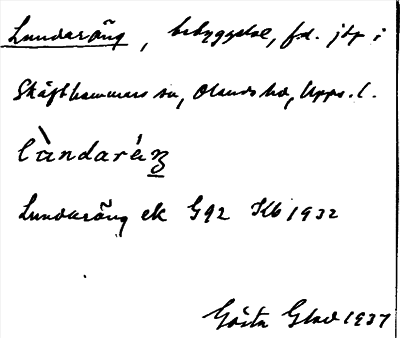 Lundaräng, bebyggelse, fd. jtp i
Skäfthammars sn, Olands hd, Upps. l.
lùndarä́ŋ
Lundaräng ek G92 Kb 1932
Gösta Glad 1937